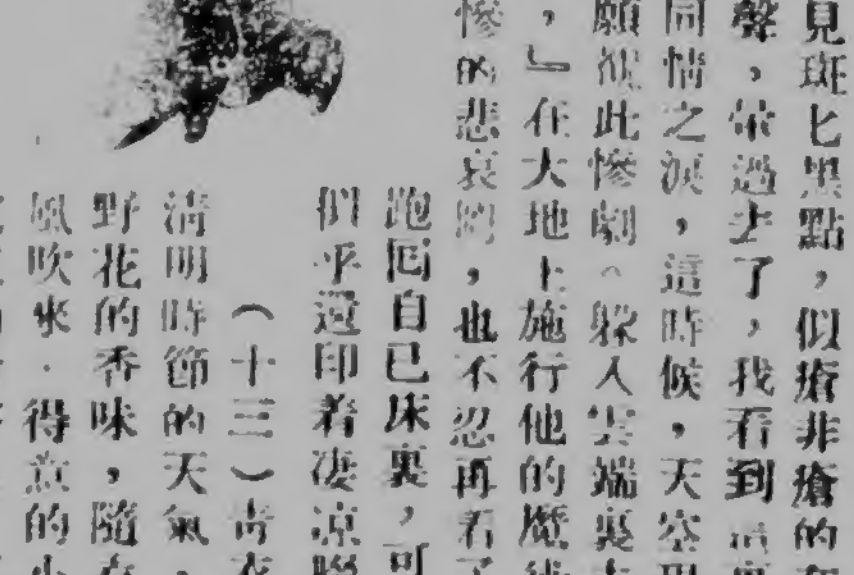 見斑匕黑點，似瘡非瘡的
聲，暈過去了，我看到這裏
同情之淚，這時候，天空
願從此慘劇。躱入雲端裏去
，』在大地上施行他的魔術
慘的悲哀的，也不忍再看了
跑囘自已床裏，可
們乎還印着淒涼
（十三）靑衣
淸明時節的天氣，
野花的香味，隨
風吹來．得意的小